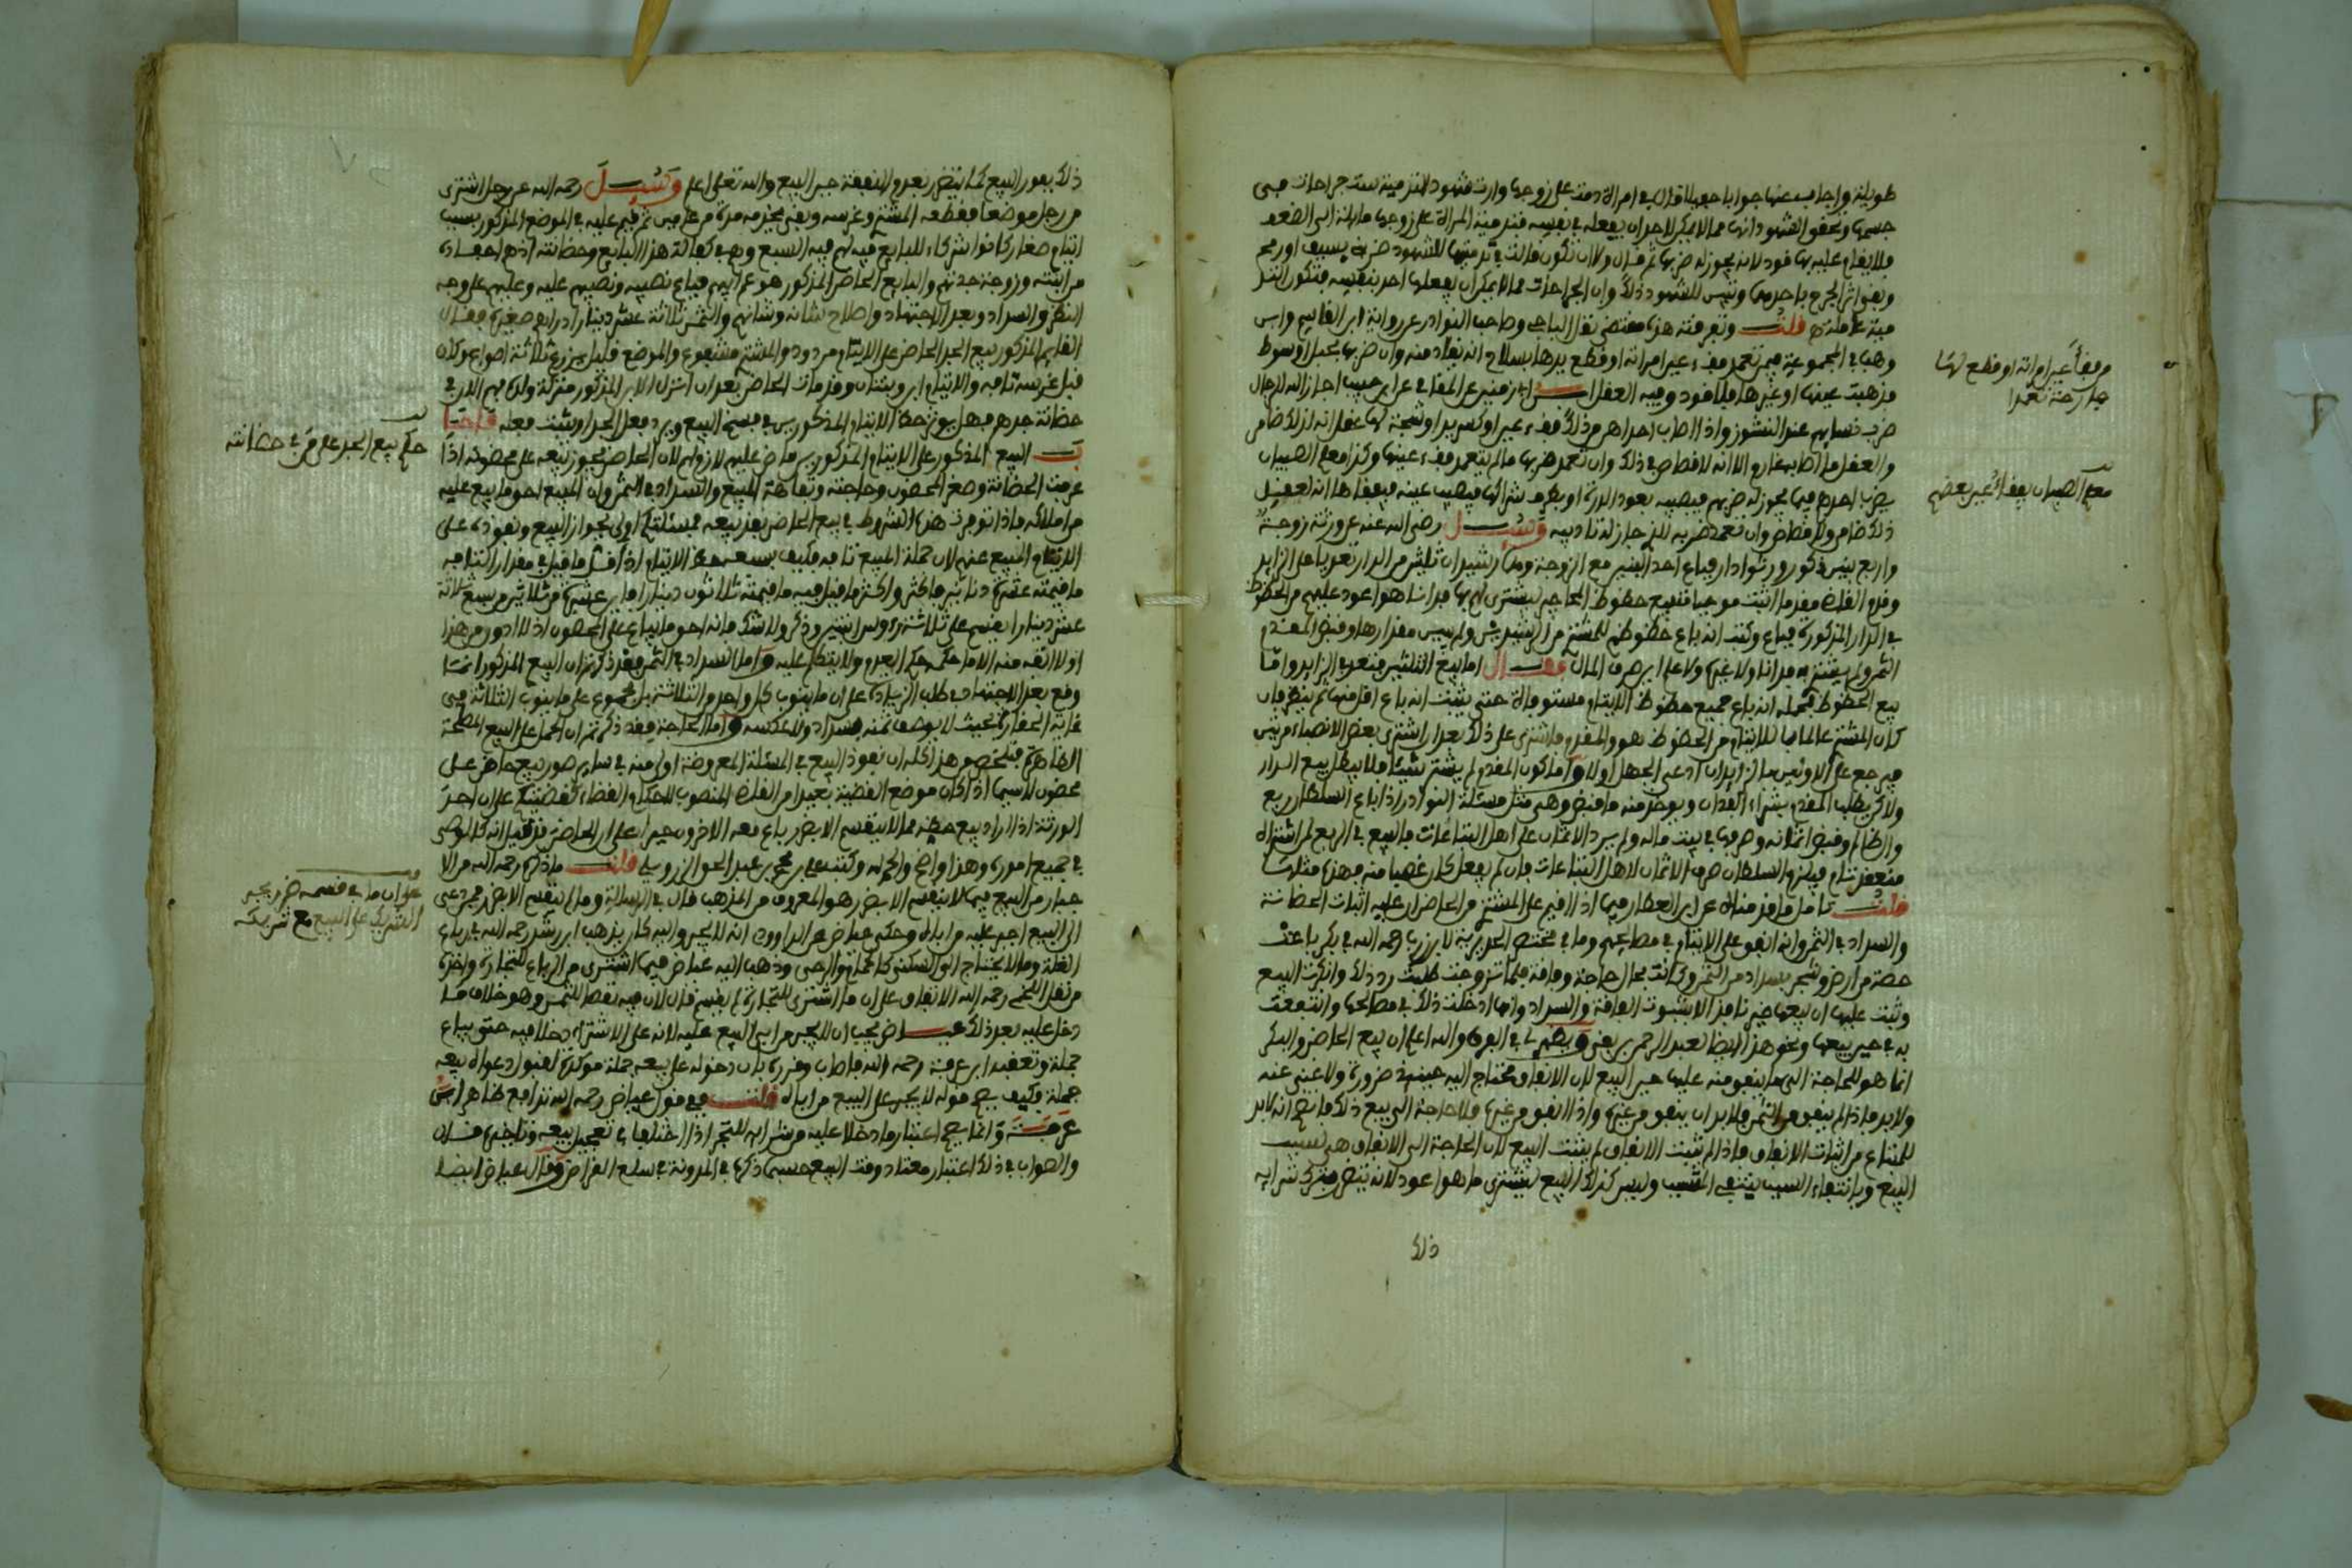 طويلة وأجاب عنها جوابا حفيلا قال في امرأة دمت على زوجها وارث فشهود التدمية ست جراحات في
جسمها وتحقق الشهود انها مما لا يمكن لاحد ان يفعله في نفسه فتدمية المرأة على زوجها
فلا يقام عليه بها قود لانه يجوز له ضربها ثم قال ولان تكون قالت في تدميتها للشهود ضربني بسيف او رمح
وبقي اثر الجرح باحدهما وتبين للشهود ذلك وان الجراحات مما لا يمكن ان يفعلها احد بنفسه فتكون
فيه عاملة قلت وتفرقته هذه مقتضى نقل الباجي وصاحب النوادر عن رواية ابن القاسم وابن
وهب في المجموعة فيمن تعمد فقء عين امراته او قطع يدها بسلاح انه يقاد منه وان ضربها بحبل او سوط
فذهبت عينها او غيرها فلا قود وفيه العقل ابن زمنين عن المغامي عن ابن حبيب اجاز الله للرجال
ضرب نسائهم عند النشوز واذا اصاب احداهن من ذلك فقء عين او كسر يد او شجة لها عقل انه لذلك ضامن
والعقل ما اصابه غارم الا انه لا قصاص في ذلك وان تعمد ضربها ما لم يتعمد فقء عينها وكذا معلم الصبيان
يضرب احدهم فيما يجوز له ضربهم فيصيبه بعود الدرة او بطرف شراكها فيصيب عينه فيفقأها انه لعقيل
ذلك ضامن ولا قصاص وان تعمد ضربه للذي جاز له تاديبه وسئل رضي الله عنه عن ورثة زوجة
واربع بنين ذكور ورثوا دارا فباع احد البنين مع الزوجة وهما رشيدان ثلثين من الدار تعديا على الزايد
وقدم القاضي مقدما اثبت موجبا لبيع حظوظ المحاجير ليشتري لهم بها فدانا هو اعود عليهم من الحظوظ
في الدار المذكورة فباع وكتب انه باع حظوظهم للمشتري من الرشيدين ولم يبين مقدارها وقبض المقدم
الثمن ولم يشتر به فدانا ولا غيره ولا علم اين صرف المال فقال اما بيع الثلثين فتعد في الزايد واما
بيع الحظوظ فمحمله انه باع جميع حظوظ الايتام مستوفاة حتى يثبت انه باع اقل منها ثم ينظر فان
كان المشتري عالما بما للايتام من الحظوظ هو والمقدم فاشترى على ذلك بعد ان اشترى بعض الانصباء من
فيرجع على الاولين بالزايد ان ادعى الجهل اولا واما كون المقدم لم يشتر شيئا فلا يبطل بيع الدار
ولاكن يطلب المقدم بشراء الفدان ويوخذ منه ما قبض وهي مثل مسئلة النوادر اذا باع السلطان ربع
والظالم وقبض اثمانه وصرفها في بيت ماله ولم يرد الاثمان على اهل التباعات فالبيع في الربع لمن اشتراه
منعقد تام فيلزم السلطان صرف الاثمان لاهل التباعات فان لم يفعل كان غصبا منه فهذه مثلها
قلت تامل ما قدمناه عن ابن العطار فيما اذا قيم على المشتري من الحاضن ان عليه اثبات الحضانة
والسداد في الثمن وانه انفق على الايتام في مصالحهم وما في مختصر الجزيرية لابن زرب رحمه الله في بكر باعت
حصة من ارض وشجر بسداد من الثمن وكانت بحال حاجة وفاقة فلما تزوجت طلبت رد ذلك وانكرت البيع
وثبت عليها ان بيعها غير نافذ الا بثبوت الفاقة والسداد وانها ادخلت ذلك في مصالحها وانتفعت
به في حين بيعها ونحو هذا ايضا لعبد الرحمن بن بقي ويظهر لي في الفرق والله اعلم ان بيع الحاضن والبكر
انما هو للحاجة التي ما ينفق منه عليها حين البيع لان الانفاق محتاج اليه حينئذ ضرورة ولا غنى عنه
ولا بد فاذا لم ينفق من الثمن فلا بد ان ينفق من غيره واذا انفق من غيره فلا حاجة الى بيع ذلك فانتج انه لا بد
للمبتاع من اثبات الانفاق فاذا لم يثبت الانفاق لم يثبت البيع لان الحاجة الى الانفاق هي سبب
البيع وبانتفاء السبب ينتفي المسبب وليس كذلك البيع ليشترى ما هو اعود لانه ينتظر شرايه
ذلك
وفقأ عين امراته او قطع لها
جارحة تعمدا
معلم الصبيان يفقأ عين بعضهم
ذلك بعد البيع كما ينتظر بعد والنفقة حين البيع والله تعلى اعلم وسئل رحمه الله عن رجل اشترى
من رجل موضعا فقطعه المشتري وغرسه وبقي بحوزه مدة من عامين ثم قيم عليه في الموضع المذكور بسبب
ايتام صغار كانوا شركاء للبايع فيه لهم فيه السبع وهم في كفالة هذا البايع وحضانته اذ هم احفاده
من ابنته وزوجة جدتهم والبايع الحاضن المذكور هو عم ابيهم فباع نصيبه ونصيبهم عليه وعليهم على وجه
النظر والسداد وبعد الاجتهاد واصلاح لشانه وشانهم والثمن ثلاثة عشر دينارا دراهم صغيرة فقال
القايم المذكور بيع الجد الحاضن على الايتام مردود والمشتري مشفوع والموضع قليل يزرع ثلاثة اصواع وكان
قبل غرسه تافه والايتام ابن وبنتان وقد مات الحاضن بعد ان انزل الابن المذكور منزلة ولده فهم الان في
حضانة جدهم فهل يوثر حظ الايتام المذكورين في فسخ البيع ويرد فعل الجد او يثبت فعله فاجا
ب البيع المذكور على الايتام المذكورين ماض عليهم لازم لهم لان الحاضن يجوز بيعه على محضونه اذا
عرفت الحضانة وصغر المحضون وحاجته وتفاهة المبيع والسداد في الثمن وان المبيع احق ما بيع عليه
من املاكه فاذا توفرت هذه الشروط في بيع الحاضن نفذ بيعه فمسئلتكم اولى بجواز البيع ونفوذه على
الايتام المبيع عنهم لان جملة المبيع تافه فكيف بسبعه حظ الايتام اذ اقل ما قيل في مقدار التافه
ما قيمته عشرة دنانير فاكثر واكثر ما قيل فيه ما قيمته ثلاثون دينارا فاين عشرة من ثلاثين من سبع ثلاثة
عشر دينارا يقسم على ثلاثة رءوس انثيين وذكر ولا شك فانه احق ما يباع على المحضون اذ لا ادون من هذا
اولا اتفه منه الا ما حكمه حكم العدم ولا يتكلم عليه واما السداد في الثمن فقد ذكرتم ان البيع المذكور انما
وقع بعد الاجتهاد في طلب الزيادة على ان ما ينوب كل واحد من الثلاثة بل مجموع على ما ينوب الثلاثة في
غاية الحقارة بحيث لا يوصف ثمنه بسداد ولا عكسه واما الحاجة فقد ذكرتم ان الحمل على البيع المصلحة
الظاهرة فتلخص من هذا كله ان نفوذ البيع في المسئلة المعروضة اولى منه في ساير صور بيع حاضن على
محضون لاسيما اذا كان موضع القضية بعيدا من القاضي المنصوب للحكم والقضاء كقضيتكم على ان احد
الورثة اذا اراد بيع حظه مما لا ينقسم الا بضرر باع معه الاخرون جبرا على ان الحاضن قد قيل انه كالوصي
في جميع اموره وهذا واضح والحمد لله وكتب علي بن محمد بن عبد الحق الزرويلي قلت ما ذكره رحمه الله من الا
جبار من البيع فيما لا ينقسم الا بضرر هو المعروف من المذهب قال في الرسالة وما لم ينقسم الا بضرر فمن دعى
الى البيع اجبر عليه من اباه وحكى عياض عن الداودي انه لا يجبر واليه كان يذهب ابن رشد رحمه الله في رباع
الغلة وما لا يحتاج الى السكنى كالحمام والرحى وذهب اليه عياض فيما اشترى من الرباع للتجارة واخذه
من نقل اللخمي رحمه الله الاتفاق على ان ما اشترى للتجارة لم يقسم قال لان فيه نقصا للثمن وهو خلاف ما
دخل عليه بعد ذلك عياض يجب ان لا يجبر من ابى البيع عليه لانه على الاشتراك دخلا فيه حتى يباع
جملة وتعقبه ابن عرفة رحمه الله فاصاب وقرره بان دخوله على بيعه جملة موكد لقبول دعواه بيعه
جملة فكيف يصح قوله لا يجبر على البيع من اباه قلت في قول عياض رحمه الله تدافع ظاهر ابن
عرفة وانما يصح اعتبار ما دخلا عليه من شرايه للتجر اذا اختلفا في تعجيل بيعه وتاخيره فقال
والصواب في ذلك اعتبار معتاد وقت البيع حسبما ذكره في المدونة في سلع القراض وقال عياض ايضا
حكم بيع الجد على من في حضانته
على ان ما في قسمه ضرر يجبر
الشريك على البيع مع شريكه